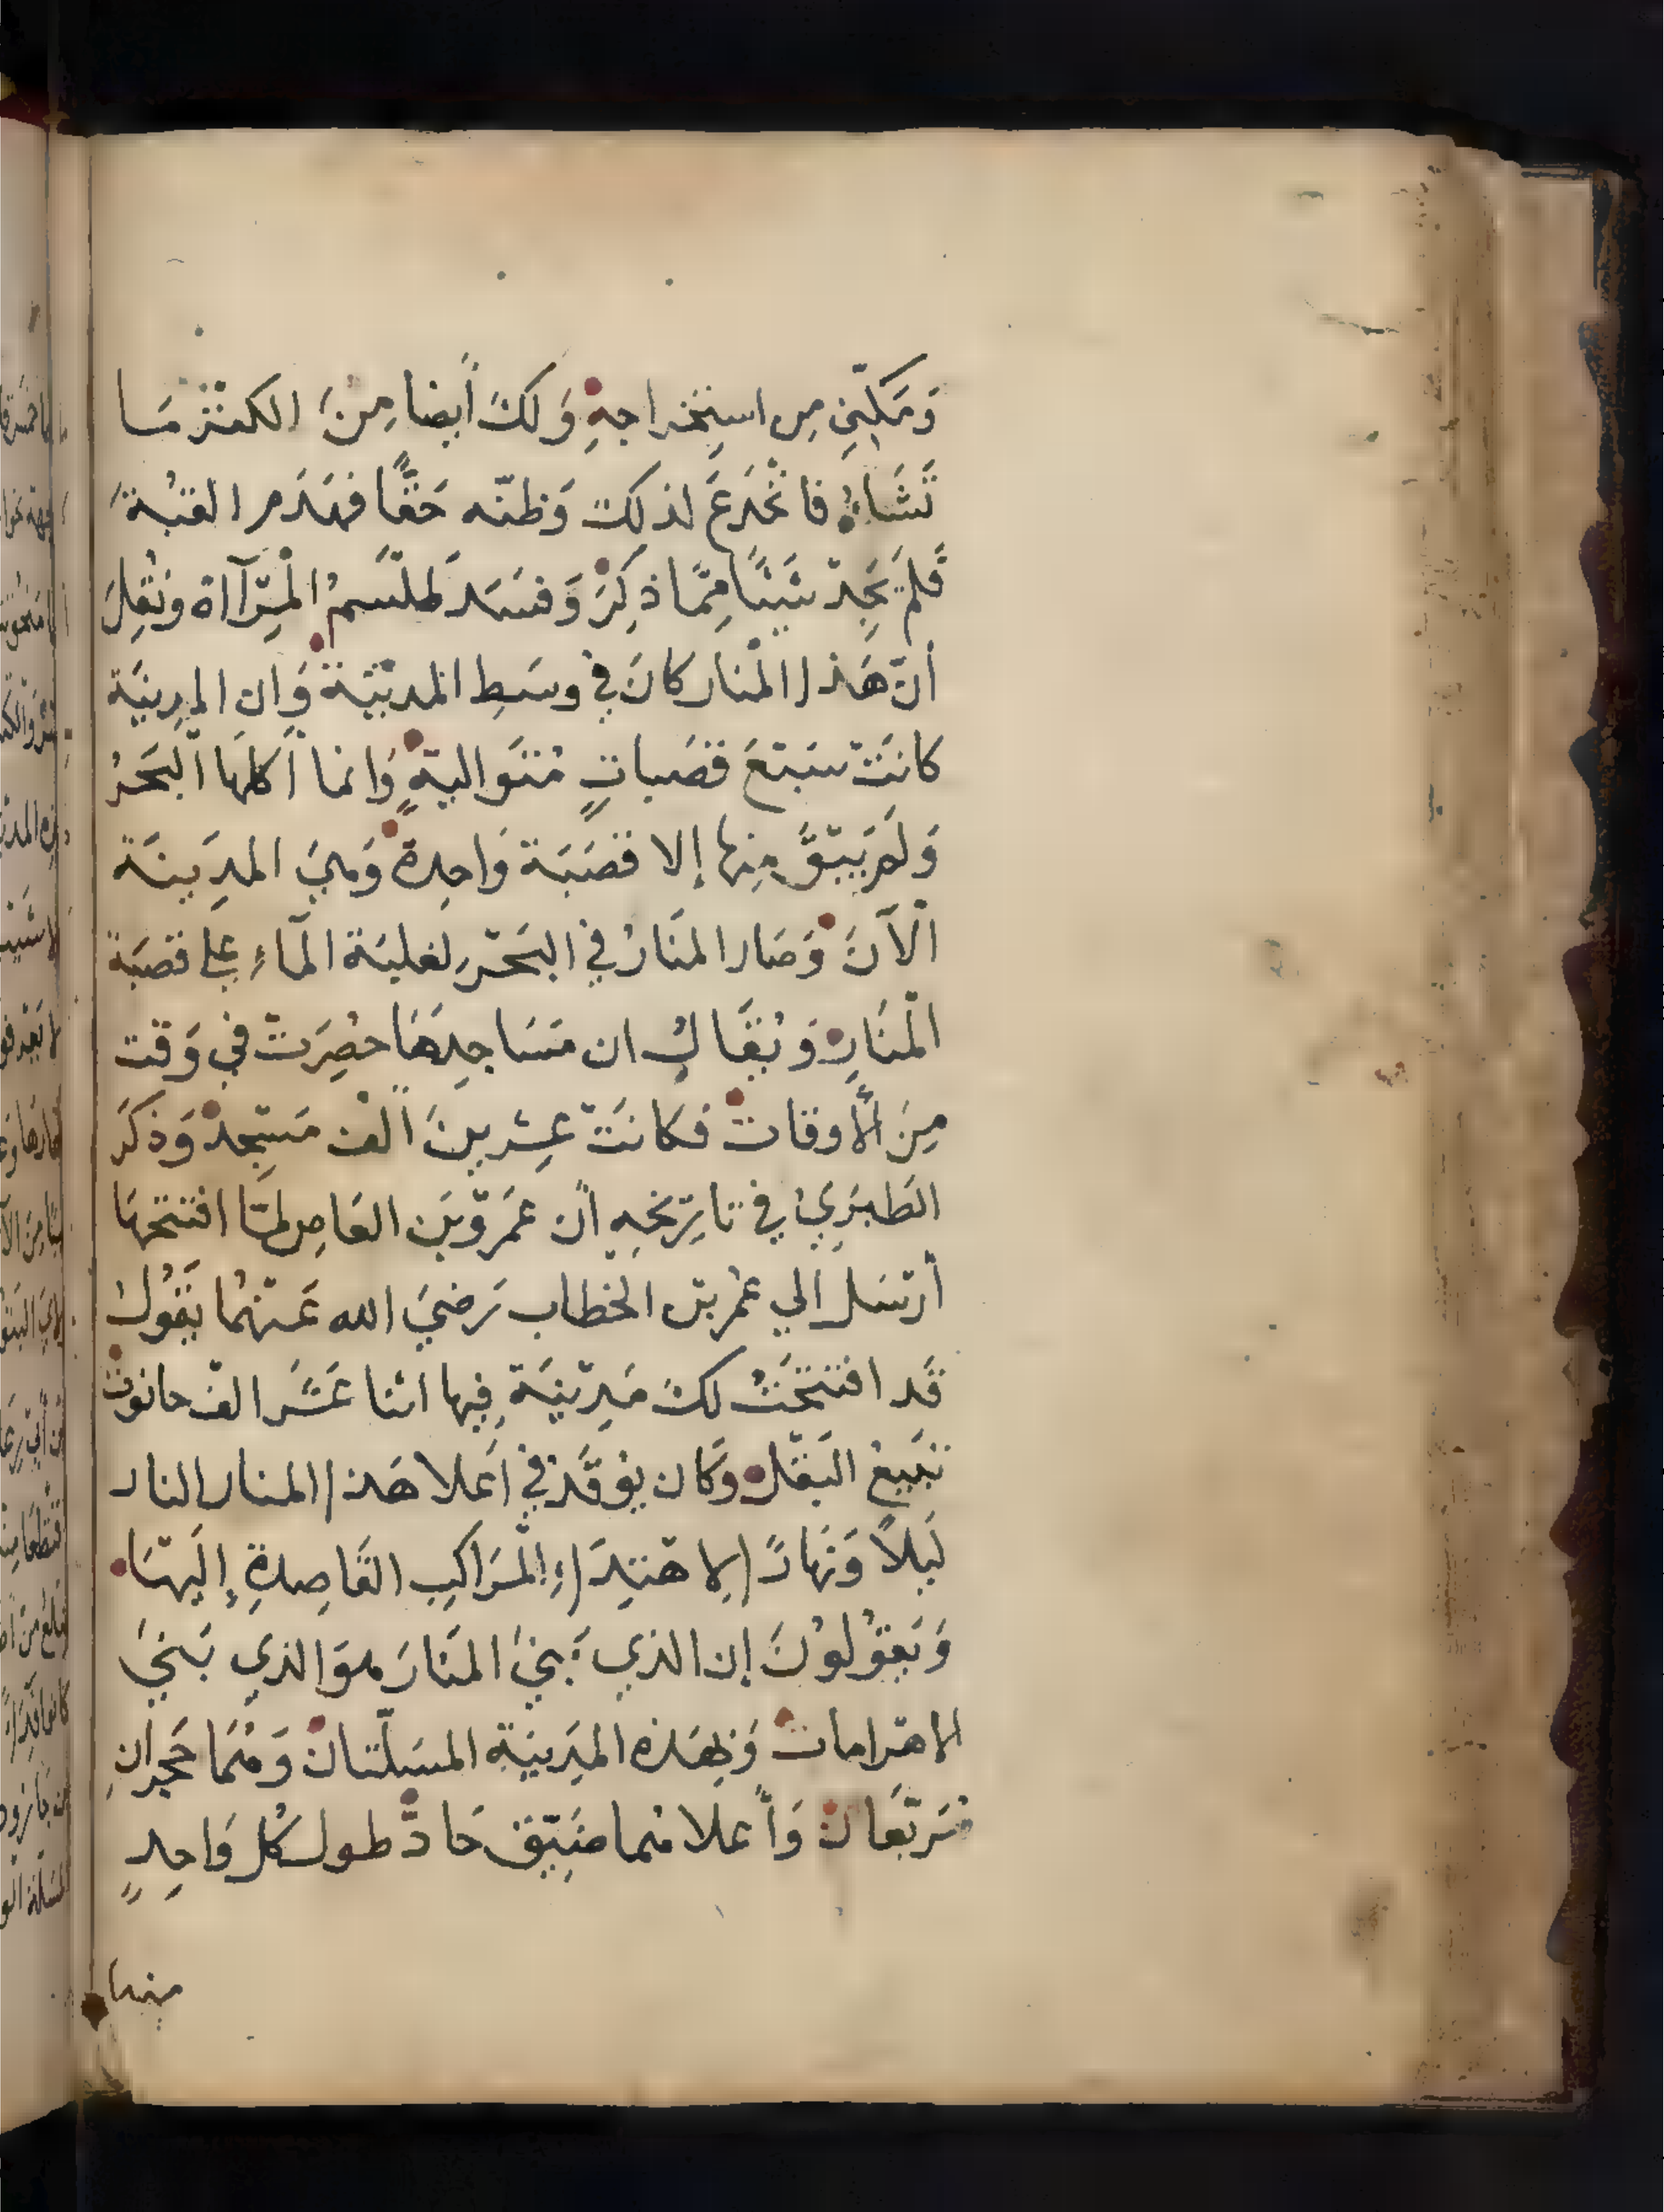 وَمَكِّنِّي مِن اسْتِخْراجِهِ وَلَكَ أيضًا مِنَ الكَنْزِ مَا
تَشَاءُ فانْخَدَعَ لذلِكَ وَظنّه حَقًّا فهَدَم القبْةَ
فَلَمْ يَجِدْ شَيْئًا مِمَّا ذكِرَ وَفسَدَ طلّسمُ الْمِرْآاة ونُقِلَ
أنّ هَذا الْمنار كَانَ في وسَطِ المدِيْنَة وَان المدِينَة
كانَتْ سَبْعَ قصَباتٍ مُتَوَاليةٍ وَانما أكلَهَا الْبَحْرُ
وَلَمْ يَبْقَ مِنها إلا قصَبَة وَاحِدة وَهِيَ المدِينَة
الْآنَ وَصَار المنَارُ في البَحْرِ لغلبَة الْمآءِ علي قصَبَة
الْمنَارِ وَيُقَالُ ان مَسَاجِدَهَا حصِرَتْ في وَقْت
مِنَ الْأوقات فَكانَتْ عِشرينَ ألْفَ مَسْجِد وَذكَرَ
الطَبَرِيُ في تارِيْخِهِ انّ عَمْرَو بْن العَاصِ لمّا افتتحهَا
أرْسَل الي عُمر بْن الخطاب رَضيَ الله عَنْهُما يَقُولُ
قَد افتتَحْتُ لكَ مَدِيْنَة فِيها اثنا عَشَر الفَ حانوت
تبَيعُ البَقْل وَكان يوقَدُ في اَعلا هَذا المنار النار
لَيلاً وَنَهارًا لاهْتِدَاءِ الْمَرَاكِبِ القَاصِدةِ إلَيهَا
وَيَقُولُونَ إن الذي بَنيَ المنَارَ هوَ الذي بَنيَ
الاهْرامات وَبِهَذه المدِينَة المسَلّتان وَهُمَا حَجرانِ
مُرَبّعَان وَأعلاهُما ضَيِّق حَادّ طول كُل وَاحِدٍ
منهما